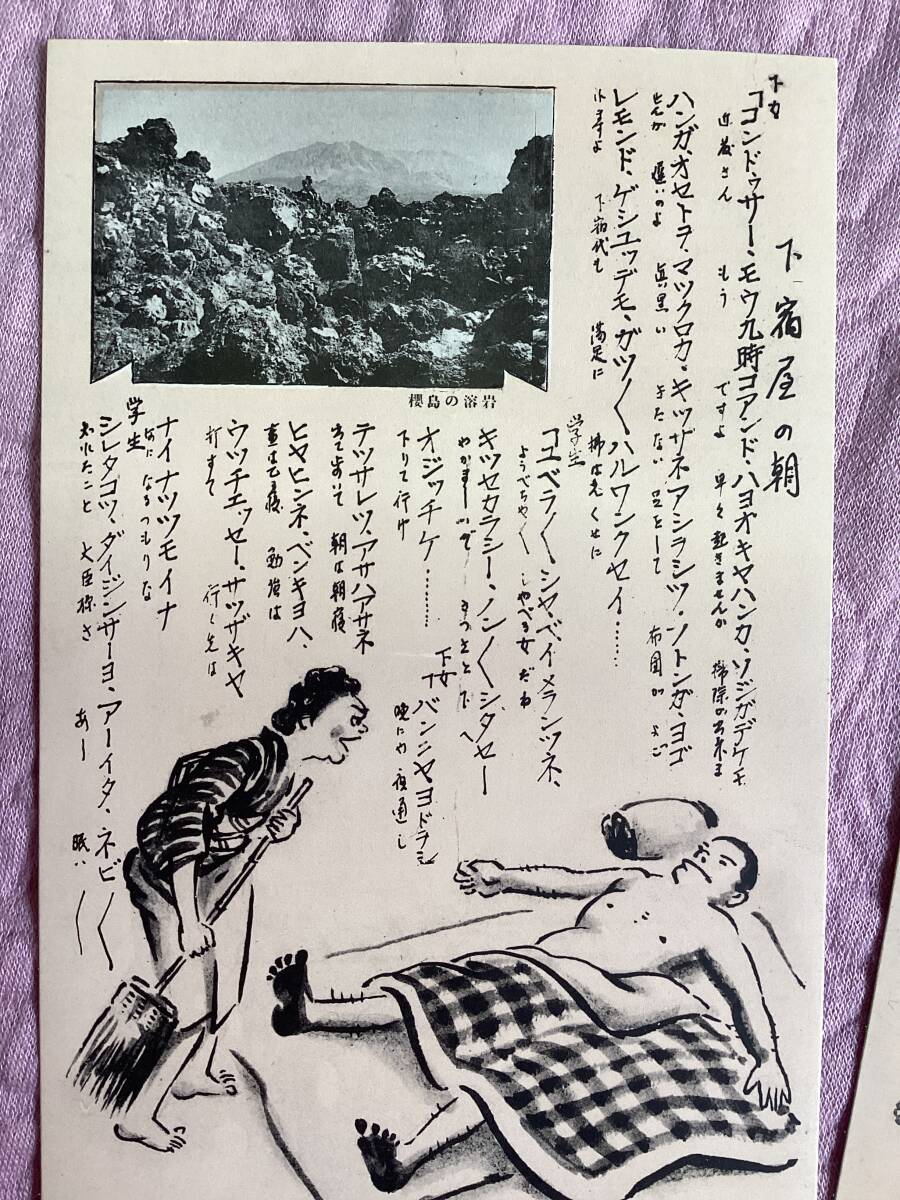 下宿屋の朝
下女
「コンドゥサー・モウ九時ゴアンド、ハヨオキヤハンカ、ソジガデケモ
近藤さん もう ですよ 早く起きませんか 掃除が出来ま
ハンガ、オセトヲ・マックロカ、キッザネアシラシツ・ソトンガ、ヨゴ
せんが 遅いのよ 眞黒い きたない足をして 布団が よご
レモンド、ゲシュッデモ、ガツ〱ハルワンクセイ……
れますよ 下宿代も 満足に 拂はぬくせに
学生
「ユベラ〱シャベ、イメランツネ、
ようべちゃ〱しやべる女だね
キッセカラシー・ノン〱シ、ダセー
やかましーッぞ
オジッチケ………
下りて行け
下女
「バンニヤヨドラシ
晩にや 夜通し
テッサレツ、アサハアサネ
朝は朝寝
ヒヤヒンネ、ベンキヨハ、
晝は昼寝 勉強は
ウッチエッセー・サッザキヤ
打すて 行く先は
ナイナッツモイナ
なになるつもりな
学生
シレタコツ、ダイジンサーヨ、アーイタ、ネビ〱
知れたこと 大臣様さ あー 眠い〱
櫻島の溶岩